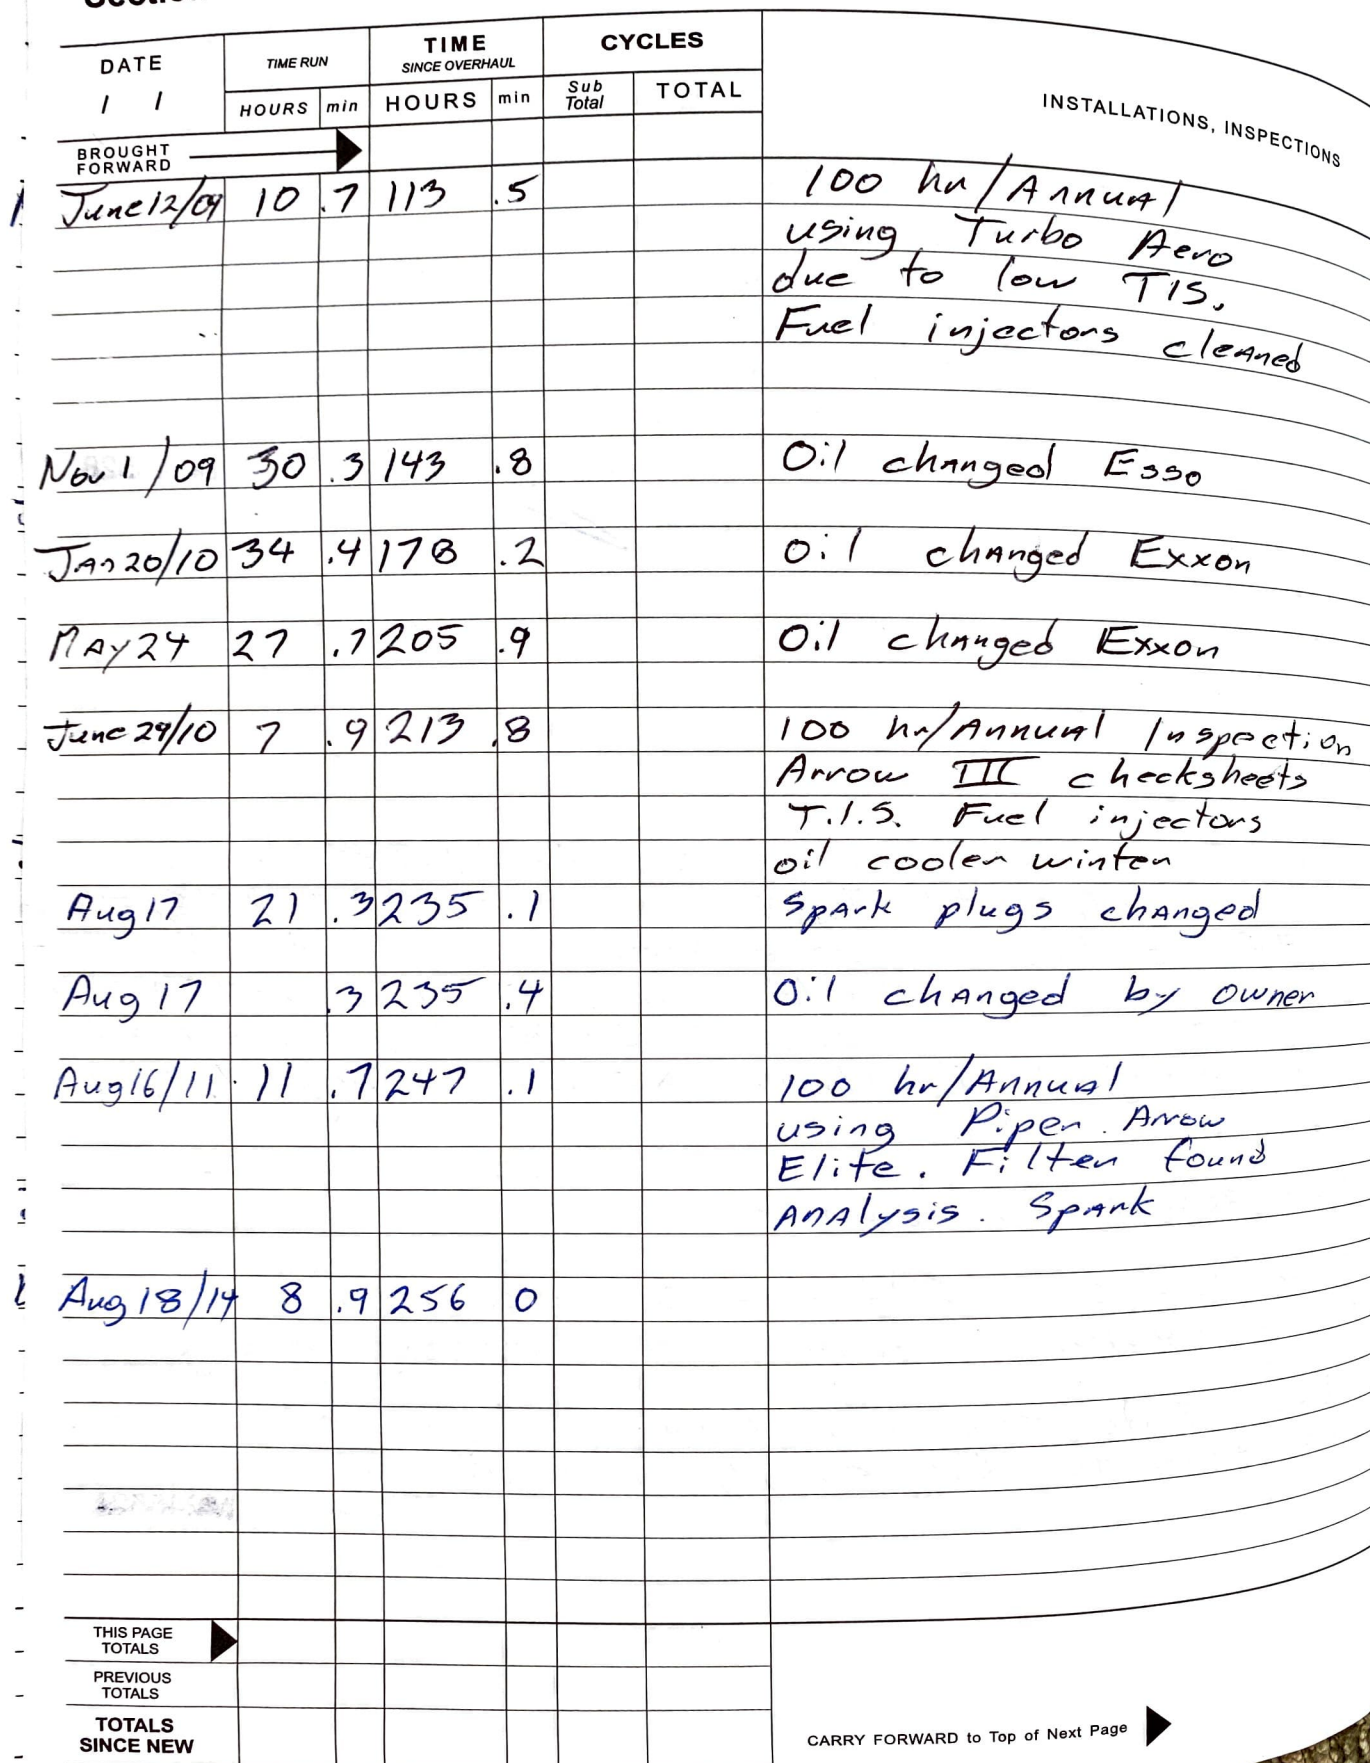 DATE TIME RUN TIME SINCE OVERHAUL CYCLES
/ / HOURS min HOURS min Sub Total TOTAL INSTALLATIONS, INSPECTIONS
BROUGHT FORWARD
June 12/09 10 .7 113 .5 100 hr/Annual
using Turbo Aero
due to low TIS.
Fuel injectors cleaned
Nov 1/09 30 .3 143 .8 Oil changed Esso
Jan 20/10 34 .4 178 .2 Oil changed Exxon
May 24 27 .7 205 .9 Oil changed Exxon
June 29/10 7 .9 213 .8 100 hr/Annual Inspection
Arrow III checksheets
T.I.S. Fuel injectors
oil cooler winter
Aug 17 21 .3 235 .1 Spark plugs changed
Aug 17 .3 235 .4 Oil changed by owner
Aug 16/11 11 .7 247 .1 100 hr/Annual
using Piper Arrow
Elite. Filter found
Analysis. Spark
Aug 18/14 8 .9 256 0
THIS PAGE TOTALS
PREVIOUS TOTALS
TOTALS SINCE NEW
CARRY FORWARD to Top of Next Page